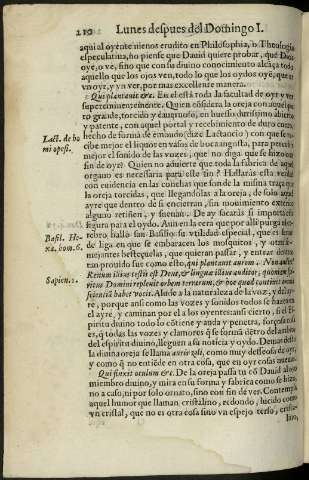 210 Lunes despues del Domingo I.
aqui al oyente menos erudito en Philosophia, o Theologia
especulatiua, no piense que Dauid quiere probar, que Dios
oye, o ve, sino que con su divino conocimiento alcãça todo
aquello que los ojos ven, todo lo que los oydos oye, que es
vn oyr, y vn ver, por mas excellente manera.
Qui plantauit &c. En el està toda la facultad de oyr y ver
supereminentemente. Quien cõsidera la oreja con aquel puer-
to grande, torcido y en huesso durissimo abierto
y patente, con aquel portal y recebimiento de duro cuero,
Lact. de ho hecho de forma de embudo (dize Lactancio) con que se re-
mi opeff. cibe mejor el liquor en vasos de boca angosta, para percebir
mejor el sonido de las vozes, que no diga que se hizo con
fin de oyr? Quien no aduierte que toda la fabrica de aquel
organo es necessaria para este fin? Hallarás esta verdad
con euidencia en las conchas que son de la misma traça que
la oreja torcidas, que llegandolas a la oreja, de solo aquel
ayre que dentro de si encierran, sin mouimiento exterior
alguno retiñen, y suenan. De ay sacarás si importa essa
figura para el oydo. Aun en la cera que por alli purga el ce-
Basil. He- lebro hallò san Basilio su vtilidad especial, que es seruir
xa. hom. 6. de liga en que se embaracen los mosquitos, y otras se-
mejantes bestezuelas, que quieran passar, y entrar dentro:
tan prouido fue como esto, qui plantauit aurem. Non audiet?
Sapien. 1. Renum illius testis est Deus, & linguæ illius auditor: quoniam spi-
ritus Domini repleuit orbem terrarum, & hoc quod continet omnia
scientiã habet vocis. Alude a la naturaleza de la voz, y del ay-
re, porque ansi como las vozes y sonidos todos se hazen en
el ayre, y caminan por el a los oyentes: ansi cierto, si el Es-
piritu diuino todo lo cõtiene y anda y penetra, forçoso
es, q̃ todas las vozes y clamores q̃ se formã dẽtro del ambito
del espiritu diuino, lleguen a su noticia y oydo. Demas desto
la diuina oreja se llama auris zeli, como muy desseosa de oyr,
y como q̃ no entiẽde en otra cosa, que en oyr cosas nuestras.
Qui finxit oculum &c. De la oreja passa tu ẽs Dauid al otro
miembro diuino, y mira en su forma y fabrica como se hizo,
no a caso, ni por solo ornato, sino con fin de ver. Contempla
aquel humor que llaman cristalino, redondo, lucido como
vn cristal, que no es otra cosa sino vn espejo terso, crista-
lino,